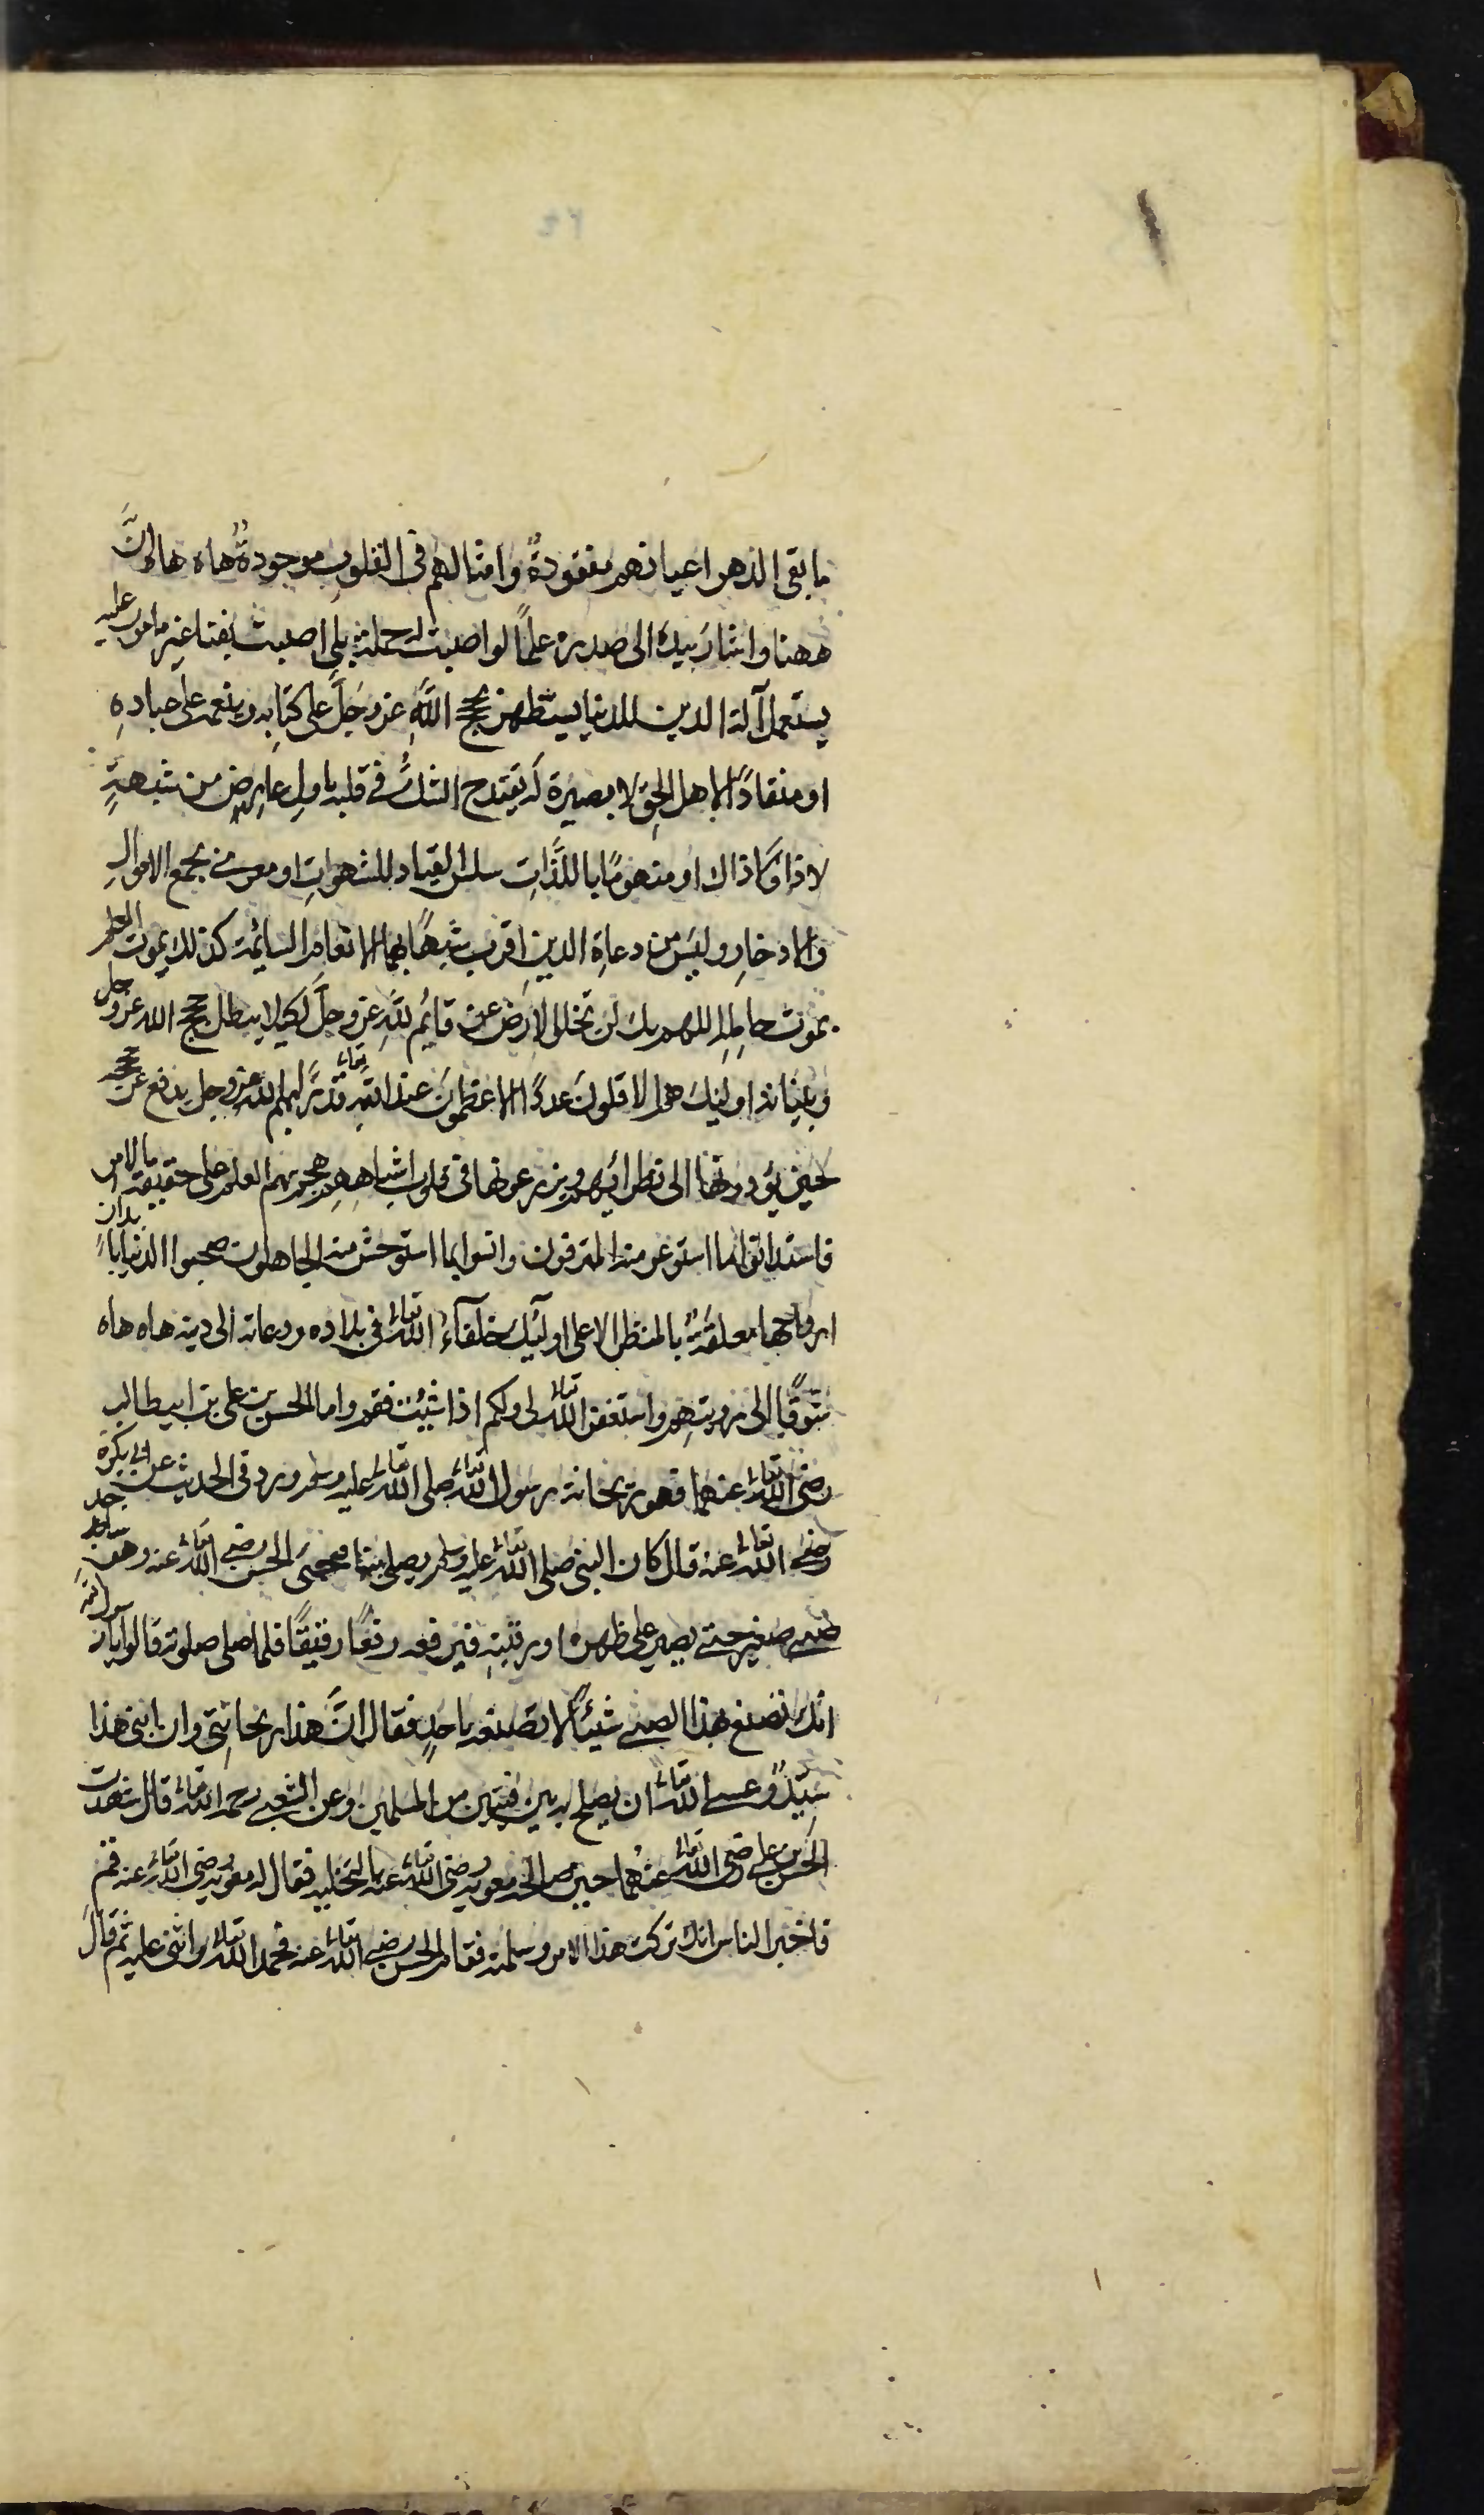 ما بقى الدهر اعيانهم مفقودةٌ وامثالهم فى القلوب موجودةٌ هاه هاه انَّ
ههنا واشار بيده الى صدره علماً لو اصبت له حملةً بلى اصبت لقنا غير مامون عليه
يستعمل آلة الدين للدنيا يستظهر بحجج اللّٰهِ عز وجَلَّ على كتابه وبنعمه على عبادهِ
او منقاداً لاهل الحق لا بصيرة له يقتدح الشكُّ فى قلبه باولِ عارضٍ من شبهةٍ
لا ذا ولا ذاك او منهومًا باللَّذَّاتِ سلس القياد للشهواتِ او مغرى بجمع الاموالِ
والادخارِ وليس من دعاةِ الدين اقرب شبهًا بهما الانعام السائمة كذلك يموت العلم
بموت حامله اللهم بلى لن تخلو الارض من قائمٍ للّٰهِ عز وجلَّ لكيلا يبطل حجج الله عز وجل
وبيناته اولئك هم الاقلون عدداً الاعظمون عند اللّٰه تعالى قدرًا بهم الله عز وجل يدفع عن حججه
حتى يؤدوها الى نظرائهم ويزرعونها فى قلوب اشباههم هجم بهم العلم على حقيقة الامر
فاستلانوا ما استوعر منه المترفون وانسوا بما استوحش منه الجاهلون صحبوا الدنيا بابدانٍ
ارواحها معلقةٌ بالمنظر الاعلى اولئك خلفآءُ اللّٰه تعالى فى بلاده ودعاته الى دينه هاه هاه
شوقًا الى رويتهم واستغفر اللّٰه تعالى لى ولكم اذا شئت فقم واما الحسن بن على بن ابيطالب
رضى اللّٰه تعالى عنهما فهو ريحانة رسول اللّٰه تعالى صلى اللّٰه تعالى عليه وسلم ورد فى الحديث عن ابى بكرة
رضى اللّٰه تعالى عنه قال كان النبى صلى اللّٰه تعالى عليه وسلم يصلى بنا فيجئ الحسن رضى اللّٰه تعالى عنه وهو ساجد
صبى صغير حتى يصير على ظهره او رقبته فيرفعه رفعًا رفيقًا فلما صلى صلوته قالوا يا رسول اللّٰه
انك تصنع بهذا الصبى شيئًا لا تصنعه باحدٍ فقال انَّ هذا ريحانتى وان ابنى هذا
سيّدٌ وعسى اللّٰه تعالى ان يصلح به بين فئتين من المسلمين وعن الشعبى رحمه اللّٰه تعالى قال شهدت
الحسن بن على رضى اللّٰه تعالى عنهما حين صالحه معوية رضى اللّٰه تعالى عنه بالنخيلة فقال له معوية رضى اللّٰه تعالى عنه قم
فاخبر الناس انك تركت هذا الامر وسلمته فقام الحسن رضى اللّٰه تعالى عنه فحمد اللّٰه تعالى واثنى عليه ثم قال